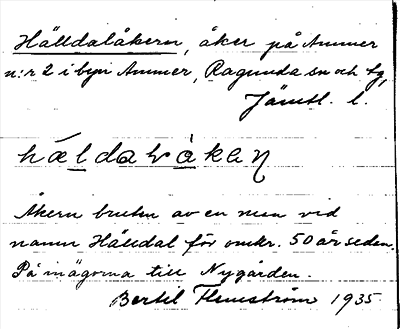 Hälldalåkern, åker på Ammer
n:r 2 i byn Ammer, Ragunda sn och tg,
Jämtl. l.
Åkern bruten av en man vid
namn Hälldal för omkr. 50 år seden.
På inägorna till Nygården.
Bertil Flemström 1935